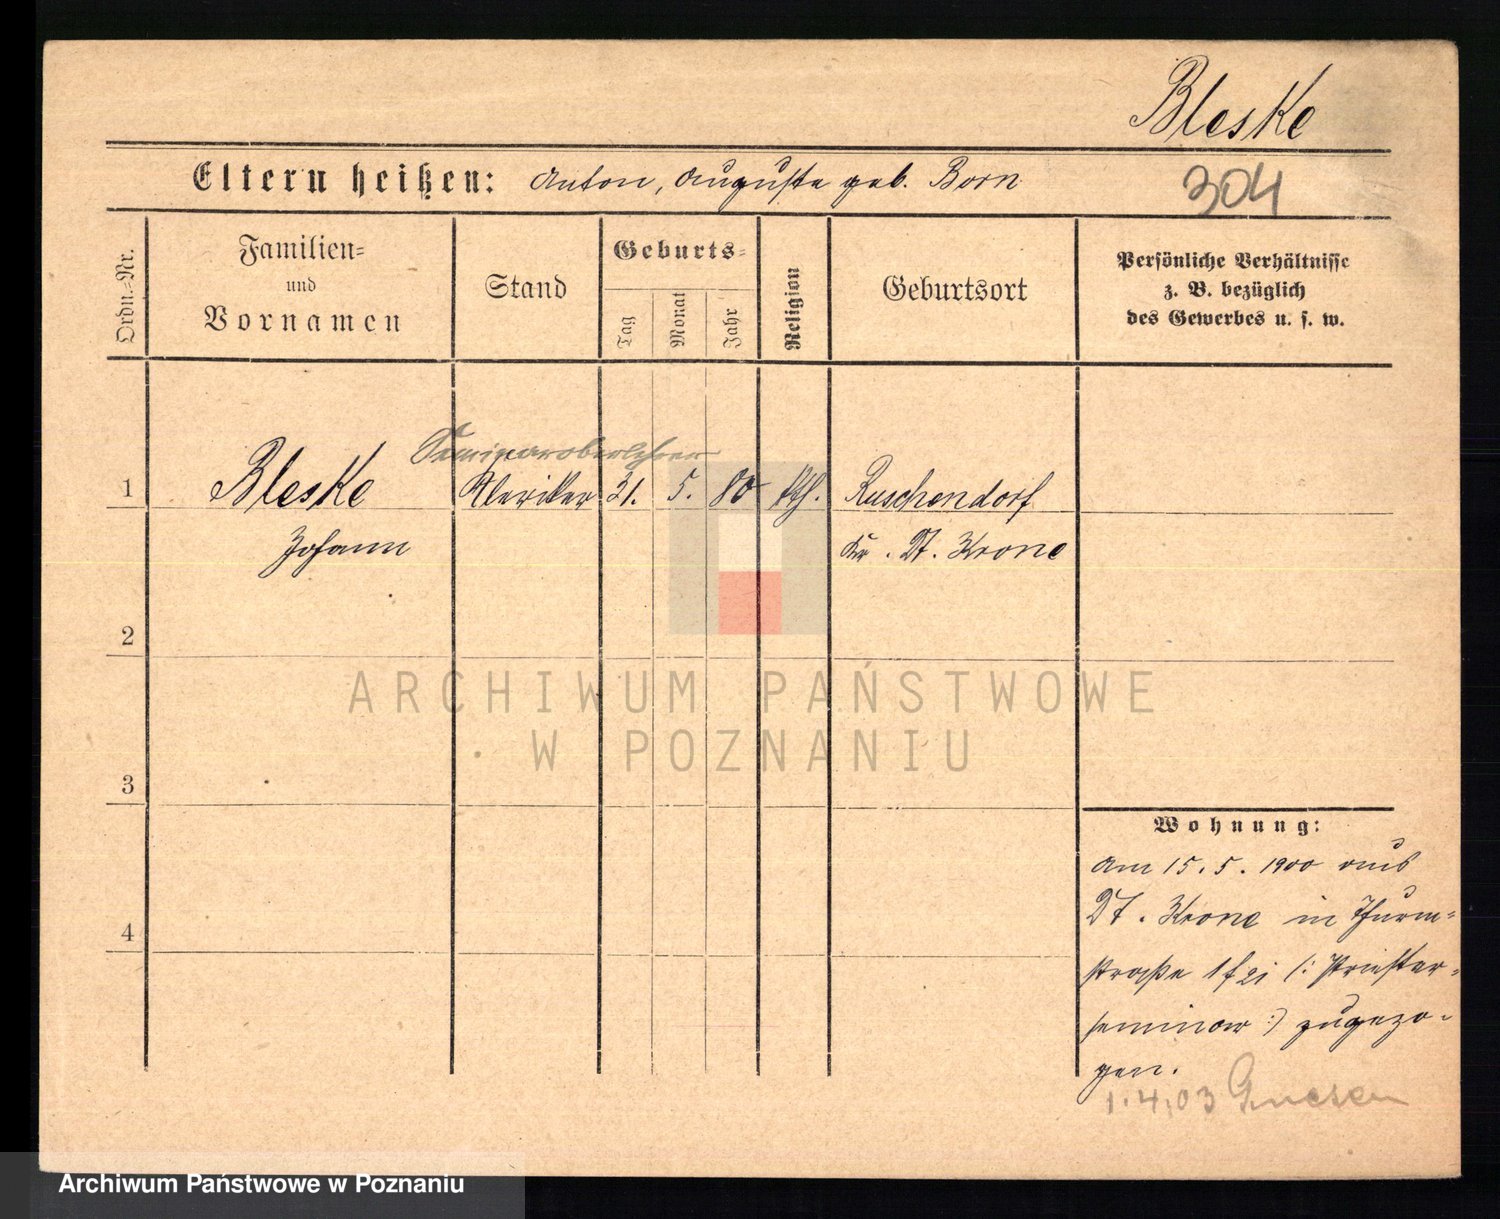 Bleske
Eltern heißen: Anton, Auguste geb. Born
304
Ordn.-Nr.
Familien-
und
Vornamen
Stand
Geburts-
Tag
Monat
Jahr
Religion
Geburtsort
Persönliche Verhältnisse
z. B. bezüglich
des Gewerbes u. s. w.
Seminaroberlehrer
1 Bleske Kleriker 31. 5. 80 kth. Ruschendorf
Johann Kr. Dt. Krone
2
3
4
Wohnung:
Am 15. 5. 1900 aus
Dt. Krone in Thurm-
straße 1 bei (: Priester-
seminar :) zugezo-
gen.
1.4.03 Gnesen
ARCHIWUM PAŃSTWOWE
W POZNANIU
Archiwum Państwowe w Poznaniu